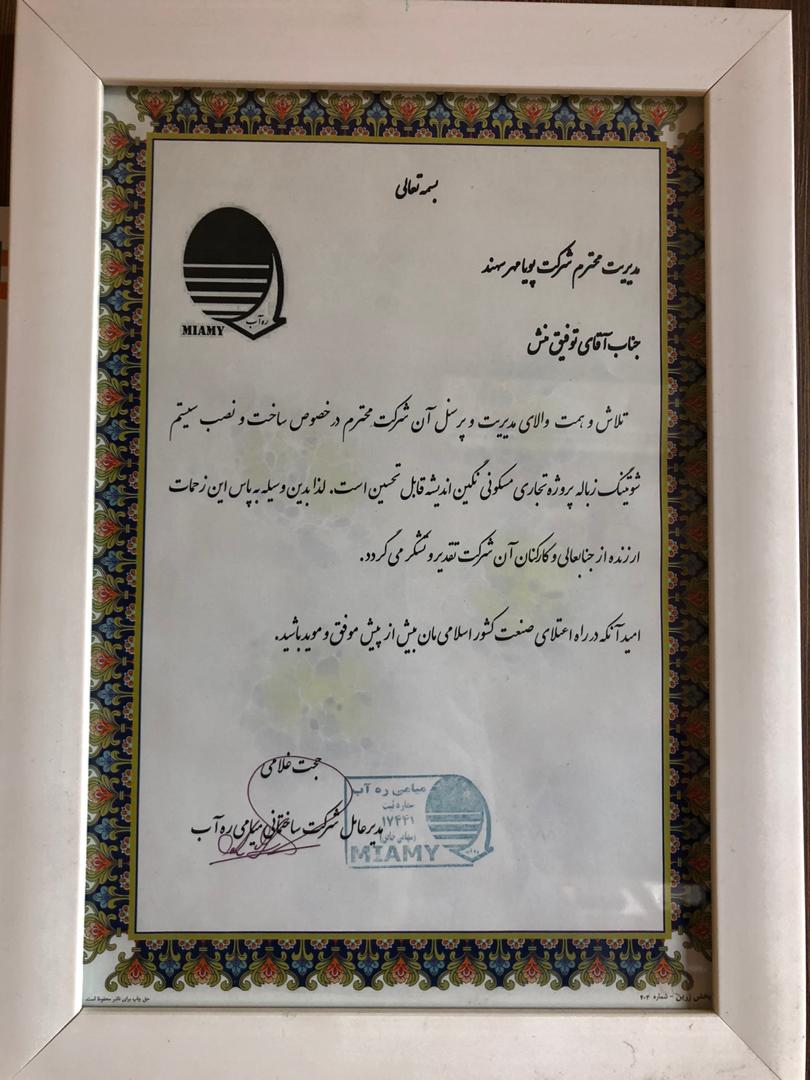 بسمه تعالی
MIAMY
ره آب
مدیریت محترم شرکت پویا مهر سهند
جناب آقای توفیق منش
تلاش و همت والای مدیریت و پرسنل آن شرکت محترم در خصوص ساخت و نصب سیستم
شوتینگ زباله پروژه تجاری مسکونی نگین اندیشه قابل تحسین است. لذا بدین وسیله به پاس این زحمات
ارزنده از جنابعالی و کارکنان آن شرکت تقدیر و تشکر می گردد.
امید آنکه در راه اعتلای صنعت کشور اسلامی مان بیش از پیش موفق و موید باشید.
حجت غلامی
مدیرعامل شرکت ساختمانی میامی ره آب
میامی ره آب
شماره ثبت
۱۷۴۴۱
(سهامی خاص)
MIAMY
ره آب
پخش زرین - شماره ۴۰۲
حق چاپ برای ناشر محفوظ است.